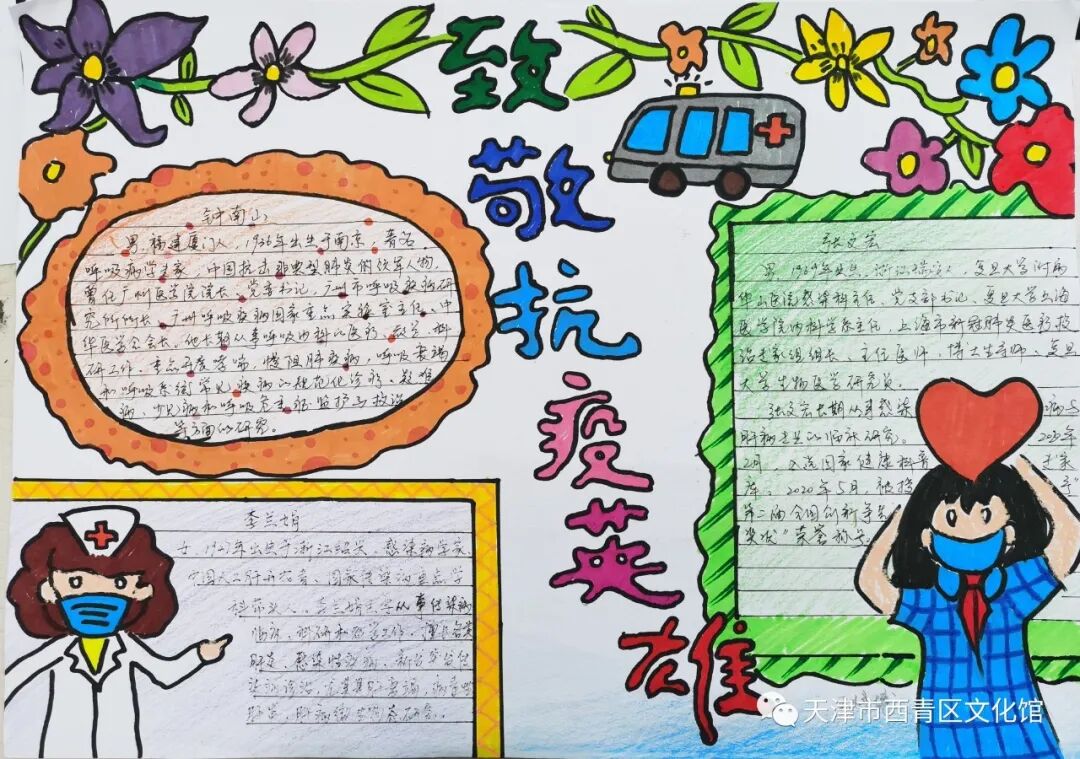 致敬抗疫英雄
钟南山
男,福建厦门人,1936年出生于南京,著名
呼吸病学专家,中国抗击非典型肺炎的领军人物,
曾任广州医学院院长、党委书记,广州市呼吸疾病研
究所所长、广州呼吸疾病国家重点实验室主任、中
华医学会会长。他长期从事呼吸内科的医疗、教学、科
研工作。重点开展哮喘,慢阻肺疾病,呼吸衰竭
和呼吸系统常见疾病的规范化诊疗、疑难
病、少见病和呼吸危重症监护与救治
等方面的研究。
张文宏
男,1969年出生,浙江瑞安人,复旦大学附属
华山医院感染科主任、党支部书记、复旦大学上海
医学院内科学系主任,上海市新冠肺炎医疗救
治专家组组长、主任医师,博士生导师、复旦
大学生物医学研究员。
张文宏长期从事感染病与
肝病 的临床研究。2020年
2月,入选国家健康科普专家
库。2020年5月,被授予
第二届全国创新争先
奖状"荣誉称号。
李兰娟
女,1947年出生于浙江绍兴,感染病学家,
中国人工肝开拓者、国家传染病重点学
科带头人。李兰娟 从事传染病
临床、科研和教学工作,擅长各类
肝炎、感染性疾病、新发突发传
染病诊治,尤其是肝衰竭、病毒性
肝炎、肝病微 研究。
天津市西青区文化馆